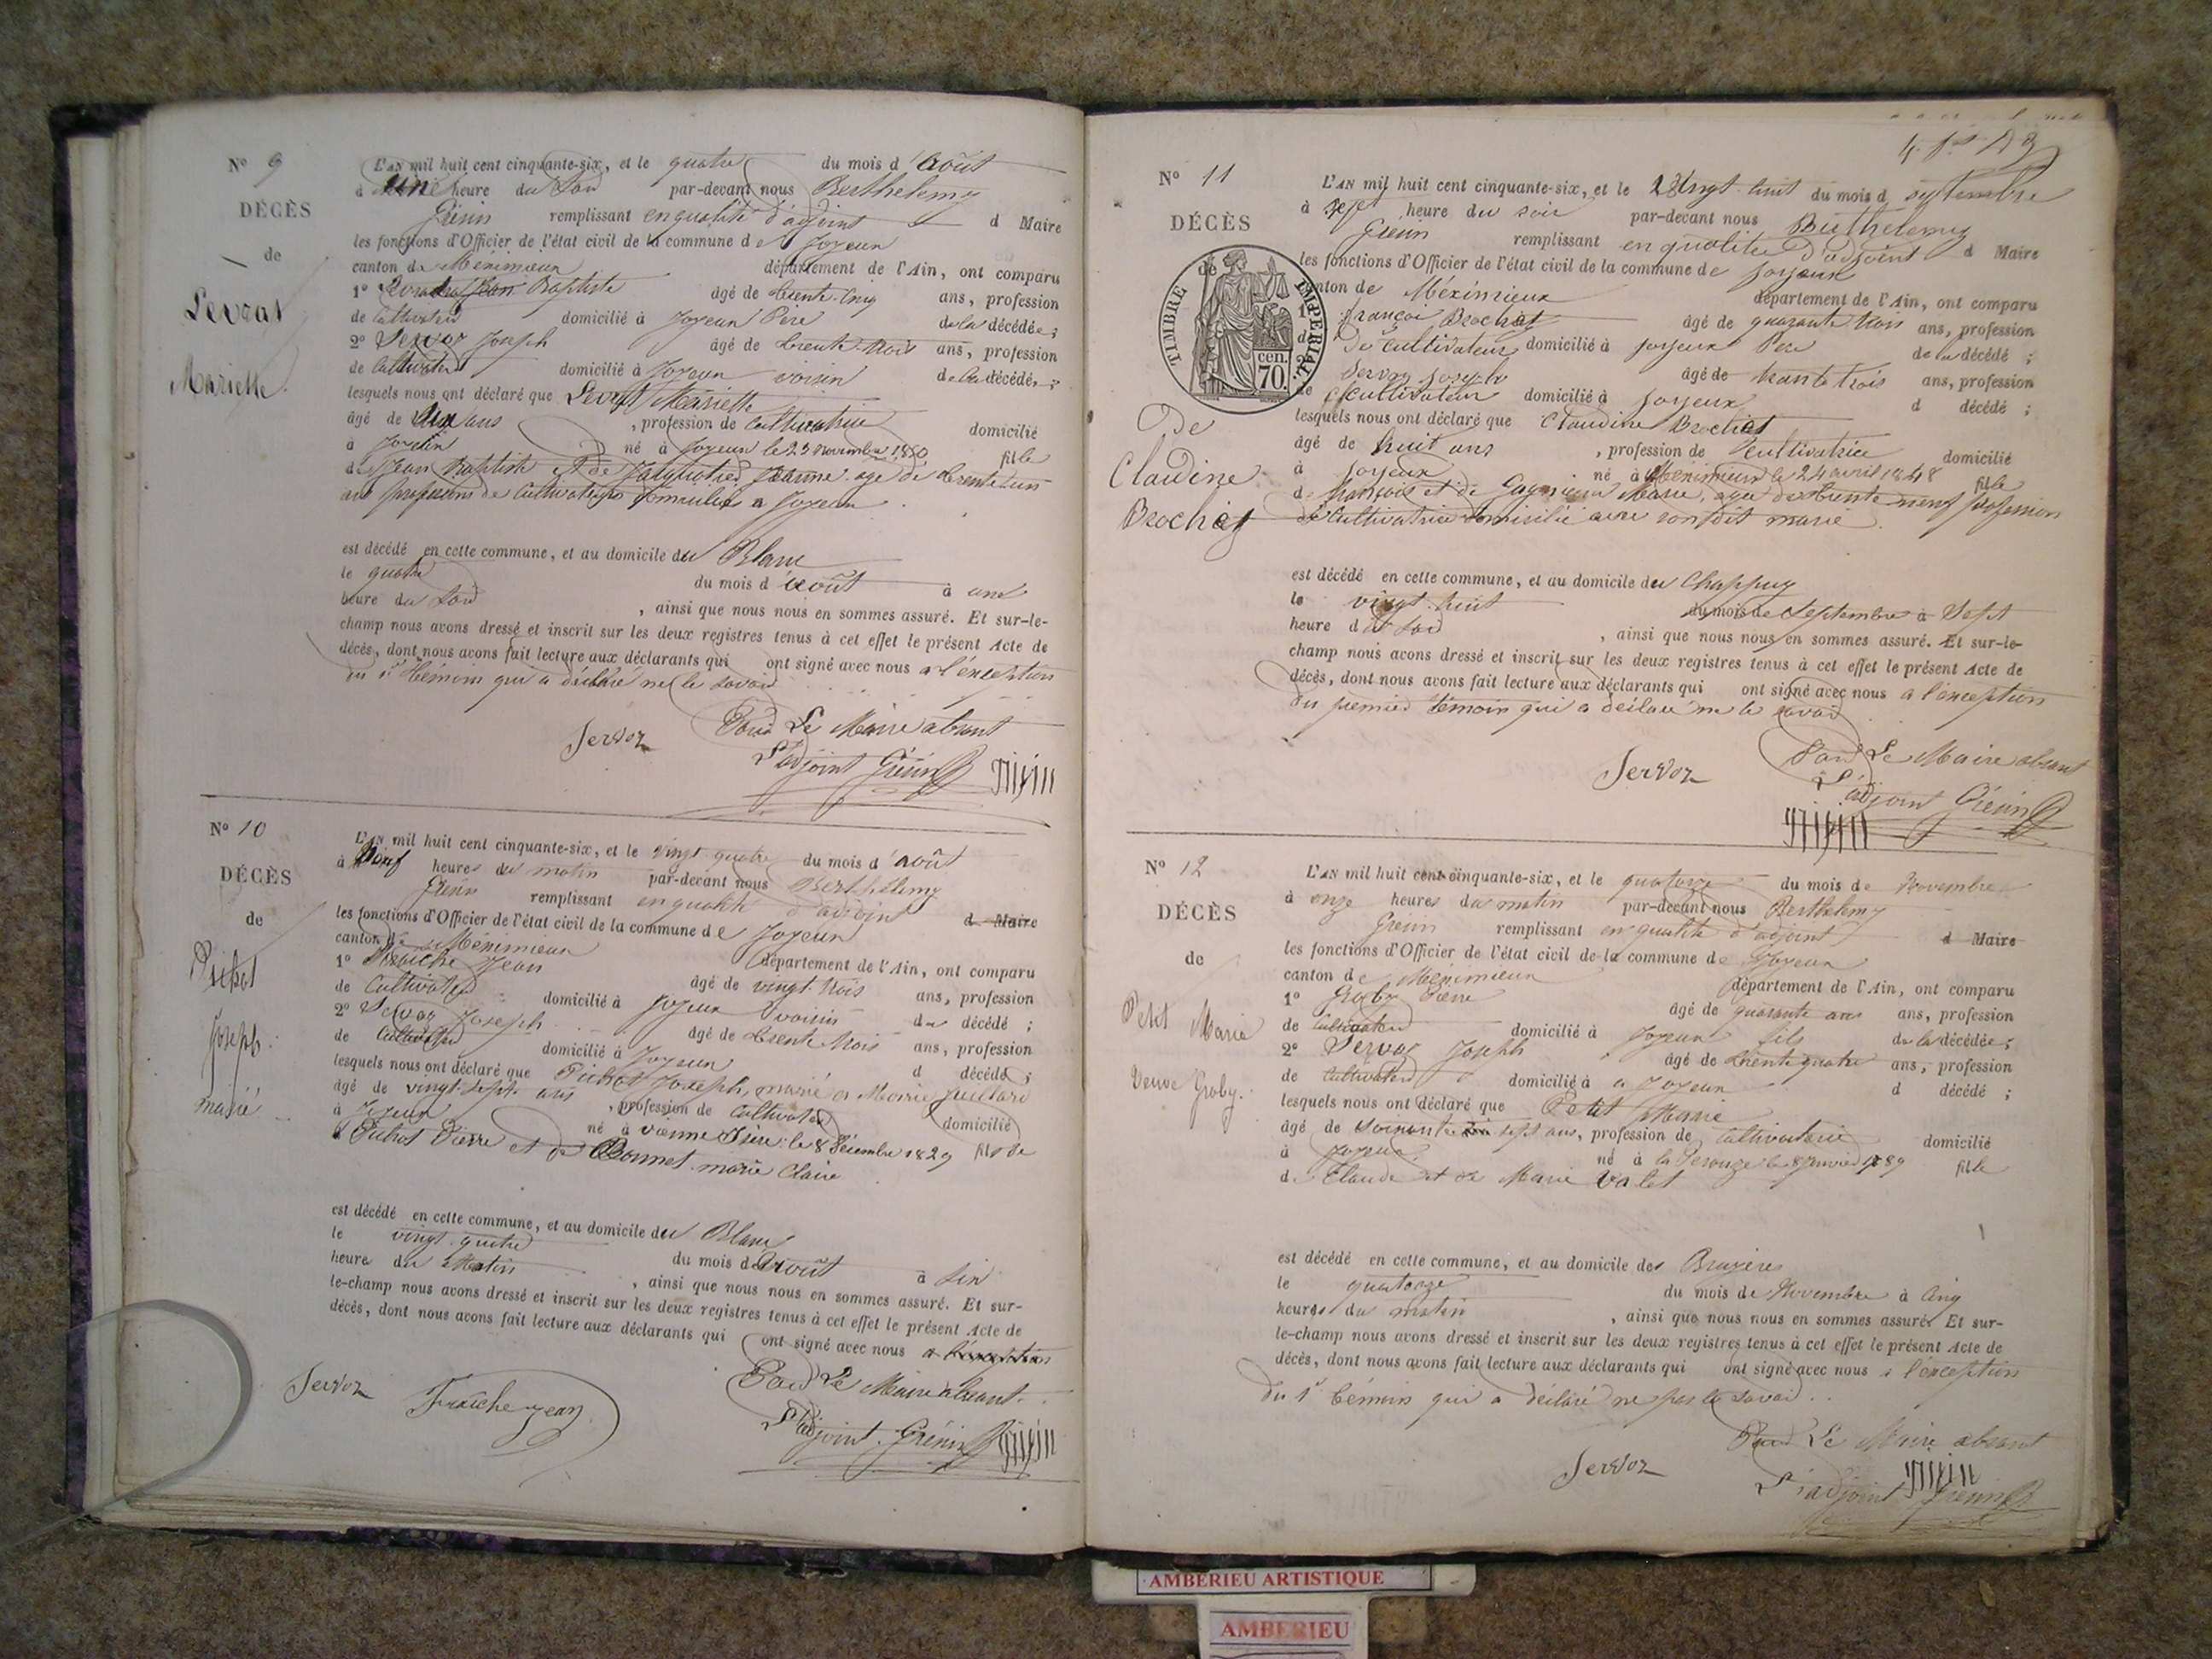 N° 9
DÉCÈS
de
Levrat
Mariette
L'AN mil huit cent cinquante-six, et le quatre du mois d'Août
à une heure du Soir par-devant nous Berthelemy
Grénin remplissant en qualité d'adjoint d Maire
les fonctions d'Officier de l'état civil de la commune de Joyeux
canton de Méximieux département de l'Ain, ont comparu
1° Jean Baptiste âgé de trente-cinq ans, profession
de Cultivateur domicilié à Joyeux Père de la décédée ;
2° Servoz Joseph âgé de trente-trois ans, profession
de Cultivateur domicilié à Joyeux voisin de la décédée ;
lesquels nous ont déclaré que Levrat Mariette
âgé de ans , profession de Cultivatrice domicilié
à né à Joyeux le 23 novembre 1850 fille
de Jean Baptiste et de Jeanne age de trente un
ans professions de Cultivateurs domiciliés a Joyeux
est décédé en cette commune, et au domicile du Blanc
le quatre du mois d'Août à une
heure du Soir , ainsi que nous nous en sommes assuré. Et sur-le-
champ nous avons dressé et inscrit sur les deux registres tenus à cet effet le présent Acte de
décès, dont nous avons fait lecture aux déclarants qui ont signé avec nous a l'exception
du 1er témoin qui a déclaré ne le savoir
Servoz Pour Le Maire absant
L'adjoint Grénin
N° 10
DÉCÈS
de
Joseph
marié
L'AN mil huit cent cinquante-six, et le vingt quatre du mois d'août
à neuf heures du matin par-devant nous Berthélemy
Grénin remplissant en qualité d'adjoint d Maire
les fonctions d'Officier de l'état civil de la commune de Joyeux
canton de Méximieux département de l'Ain, ont comparu
1° Fraiche Jean âgé de vingt-trois ans, profession
de Cultivateur domicilié à Joyeux voisin du décédé ;
2° Servoz Joseph âgé de trente trois ans, profession
de Cultivateur domicilié à Joyeux d décédé ;
lesquels nous ont déclaré que Joseph, marié a Marie
âgé de vingt-sept ans , profession de Cultivateur domicilié
à Joyeux né à vienne Isère le 8 Décembre 1829 fils de
Pierre et de Bonnet marie Claire
est décédé en cette commune, et au domicile du Blanc
le vingt-quatre du mois d'août à Six
heure du Matin , ainsi que nous nous en sommes assuré. Et sur-
le-champ nous avons dressé et inscrit sur les deux registres tenus à cet effet le présent Acte de
décès, dont nous avons fait lecture aux déclarants qui ont signé avec nous a l'exception
Servoz Fraiche jean Pour Le Maire absant
L'adjoint Grénin
N° 11
DÉCÈS
de
TIMBRE IMPERIAL
cen. 70
De
Claudine
Brochet
L'AN mil huit cent cinquante-six, et le Vingt huit du mois d septembre
à sept heure du soir par-devant nous Berthelemy
Grénin remplissant en qualité D'adjoint d Maire
les fonctions d'Officier de l'état civil de la commune de Joyeux
canton de Méximieux département de l'Ain, ont comparu
françoi Brochet âgé de quarante trois ans, profession
De cultivateur domicilié à joyeux Père de la décédé ;
Servoz joseph âgé de trante trois ans, profession
de Cultivateur domicilié à joyeux d décédé ;
lesquels nous ont déclaré que Claudine Brochet
âgé de huit ans , profession de Cultivatrice domicilié
à joyeux né à Méximieux le 24 avril 1848 fille
de françois et de Marie, agée de trente neuf profession
de Cultivatrice domicilié avec son dit marie
est décédé en cette commune, et au domicile du Chappuy
le vingt-huit du mois de Septembre à Sept
heure du Soir , ainsi que nous nous en sommes assuré. Et sur-le-
champ nous avons dressé et inscrit sur les deux registres tenus à cet effet le présent Acte de
décès, dont nous avons fait lecture aux déclarants qui ont signé avec nous a l'exception
du premier témoin qui a déclaré ne le savoir
Servoz Pour Le Maire absant
L'adjoint Grénin
N° 12
DÉCÈS
de
Petit Marie
Veuve Groby
L'AN mil huit cent cinquante-six, et le quatorze du mois de Novembre
à onze heures du matin par-devant nous Berthelemy
Grénin remplissant en qualité d'adjoint d Maire
les fonctions d'Officier de l'état civil de la commune de Joyeux
canton de Méximieux département de l'Ain, ont comparu
1° Groby Pierre âgé de quarante ans ans, profession
de Cultivateur domicilié à Joyeux fils de la décédée ;
2° Servoz Joseph âgé de trente quatre ans, profession
de Cultivateur domicilié à a Joyeux d décédé ;
lesquels nous ont déclaré que Petit Marie
âgé de soixante sept ans, profession de Cultivatrice domicilié
à Joyeux né à la Perouze le 8 Janvier 1789 fille
de Claude et de Marie Valet
est décédé en cette commune, et au domicile des Bruyères
le quatorze du mois de Novembre à Cinq
heures du matin , ainsi que nous nous en sommes assuré. Et sur-
le-champ nous avons dressé et inscrit sur les deux registres tenus à cet effet le présent Acte de
décès, dont nous avons fait lecture aux déclarants qui ont signé avec nous a l'exception
du 1er témoin qui a déclaré ne pas le savoir
Servoz Pour Le Maire absant
L'adjoint Grénin
AMBERIEU ARTISTIQUE
AMBERIEU